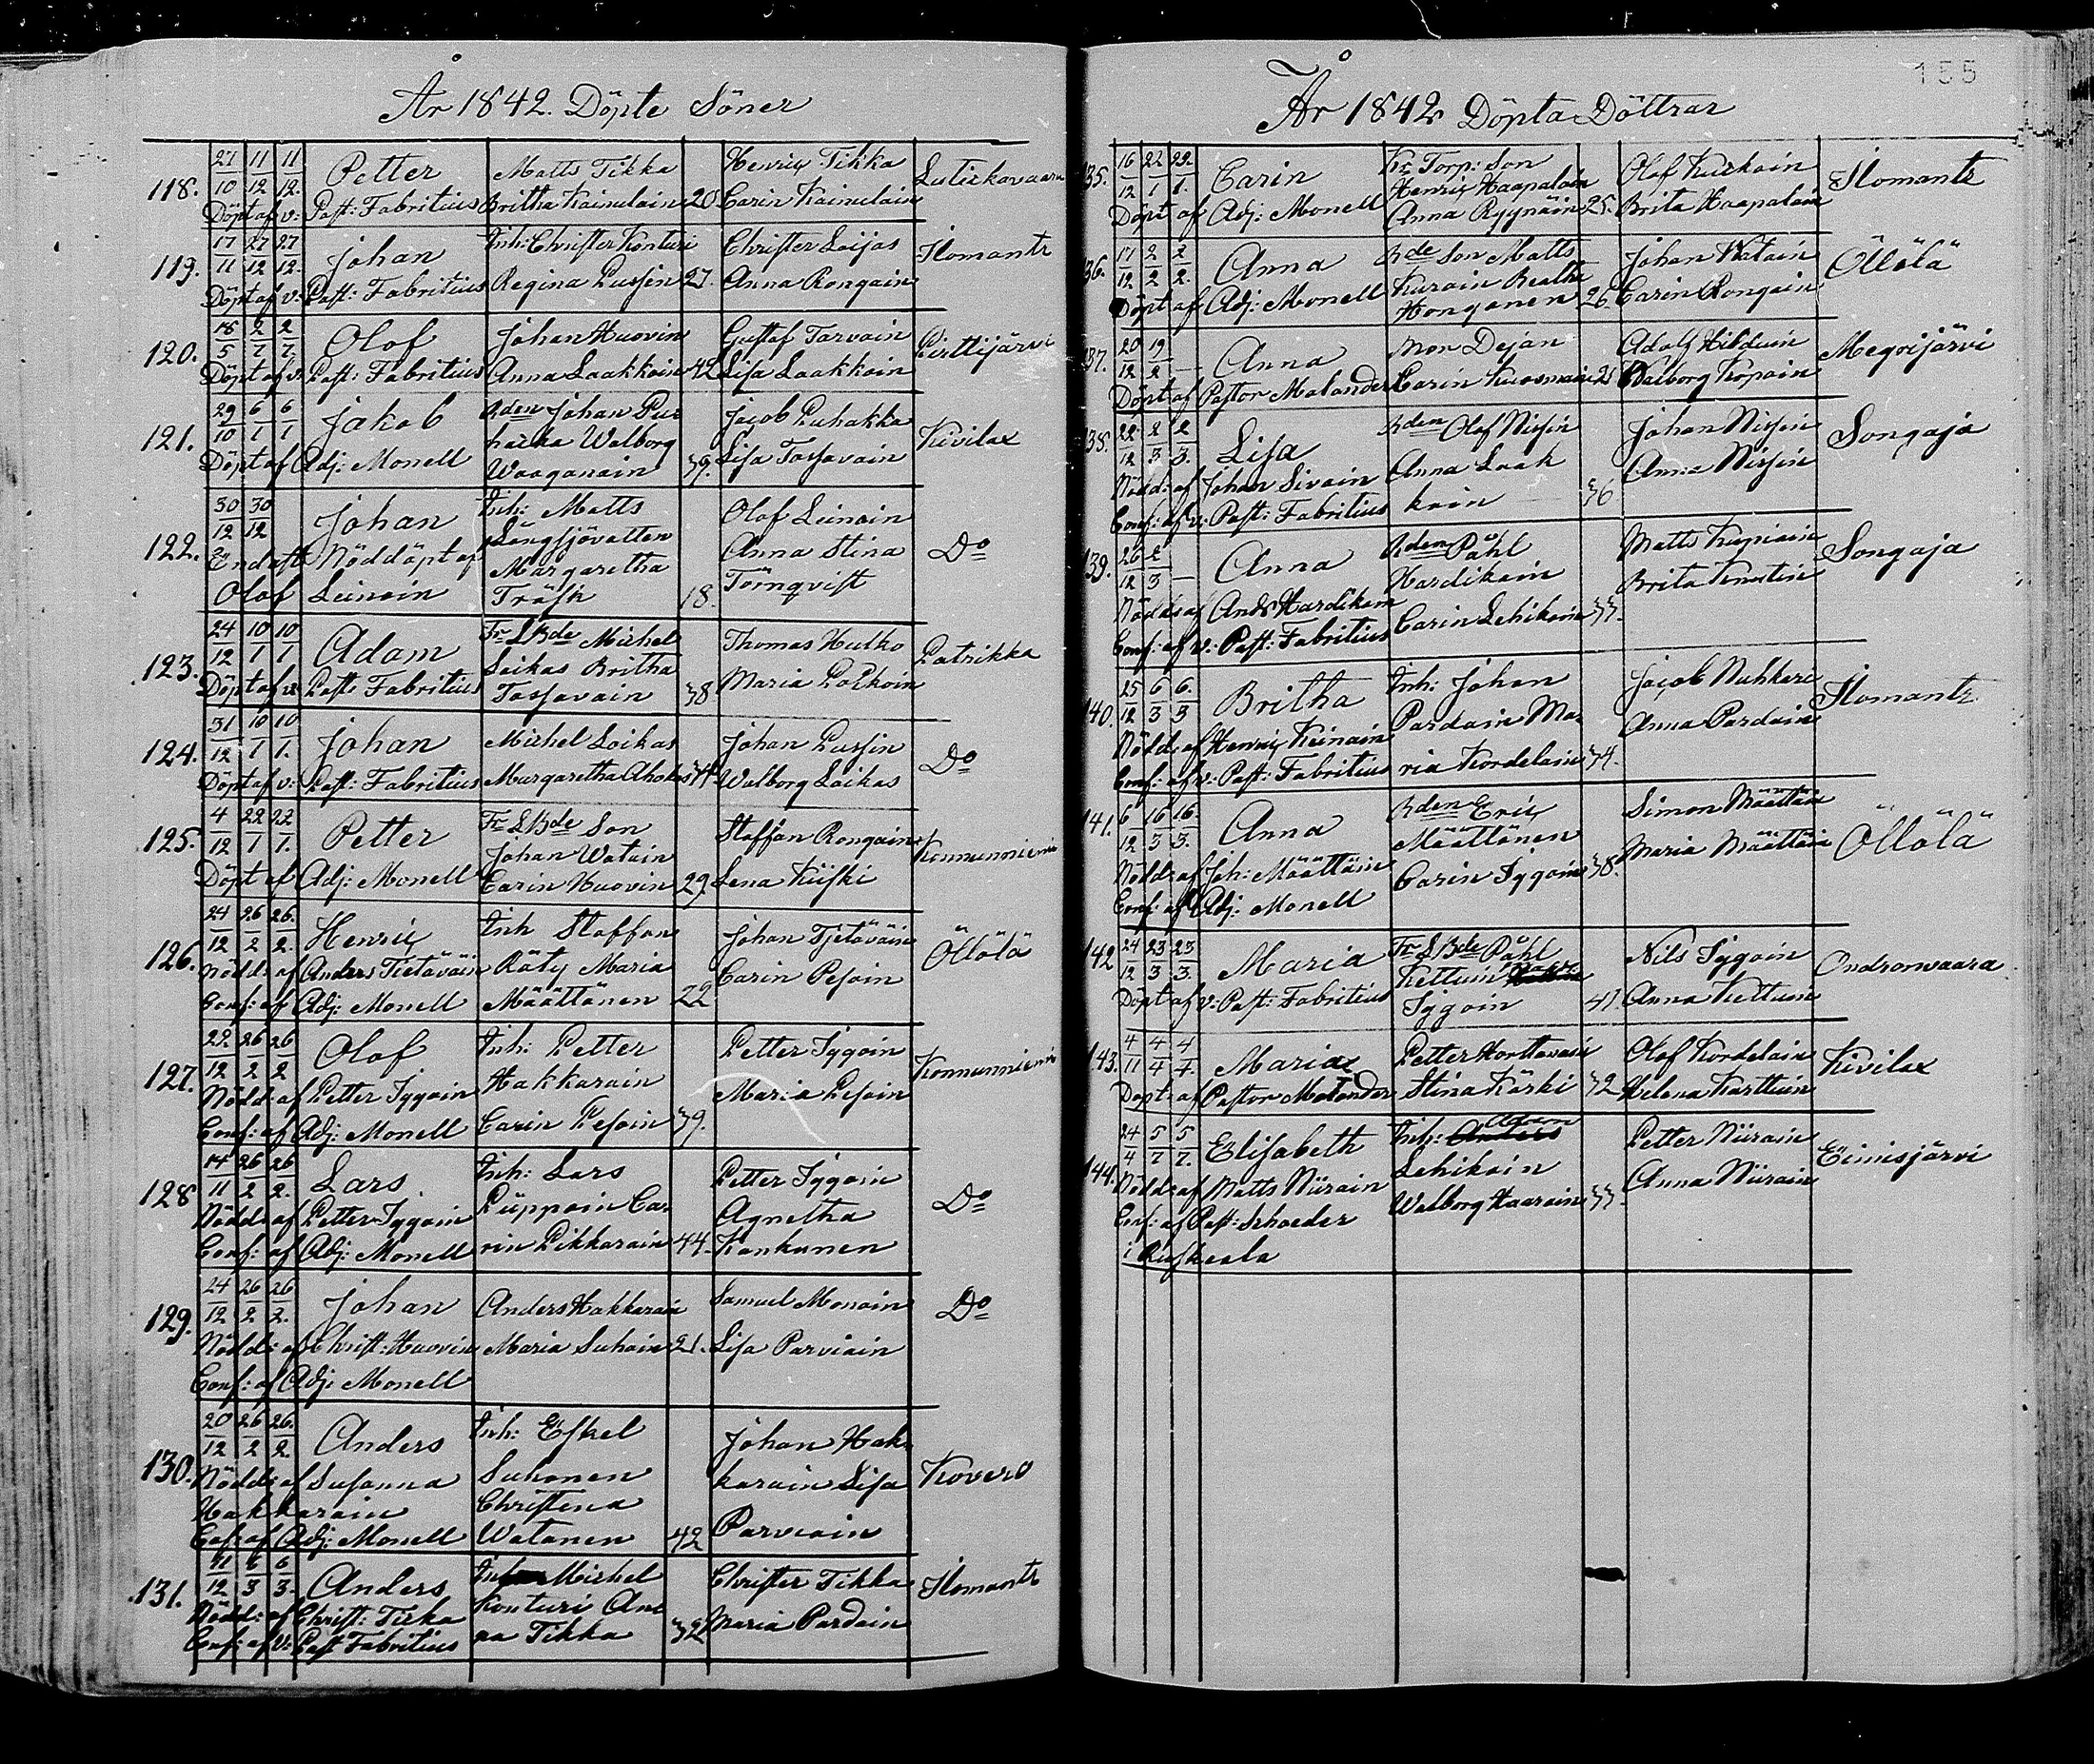 År 1842. Döpte Söner
118. 27/10 11/12 11/12. Petter Matts Tikka Henric Tikka
Döpt af v: Past: Fabritius Britha Kainulain 20 Carin Kainulain
119. 17/11 27/12 27/12. Johan Inh: Christer Konturi Christer Loijas Ilomants
Döpt af v: Past: Fabritius Regina Pussin 27. Anna Rongain
120. 18/5 2/7 2/7. Olof Johan Huovin Gustaf Tarvain Pirttijärvi
Döpt af v: Past: Fabritius Anna Laakkoin 42 Lisa Laakkoin
121. 29/10 6/1 6/1 Jakob Rden Johan Pu-
hacka Walborg Jacob Puhakka Kivilax
Döpt af Adj: Monell Waaganain 39. Lisa Tossavain
122. 30/12 30/12 Johan Inh: Matts Olof Leinoin
Långsjövatten Anna Stina Do
Endast Nöddöpt af Margaretha Törnqvist
Olof Leinoin Träsk 18.
123. 24/12 10/1 10/1 Adam Fr SBde Michel Thomas Hutko Patrikka
Loikas Britha Maria Polkoin
Döpt af v: Past: Fabritius Tossavain 38
124. 31/12 10/1 10/1. Johan Michel Loikas Johan Pussin Do
Döpt af v: Past: Fabritius Margaretha Ahokas 34 Walborg Loikas
125. 4/12 22/1 22/1. Petter Fr SBde Son Staffan Rongain Konnunniemi
Johan Watain
Döpt af Adj: Monell Carin Huovin 29. Lena Kiiski
126. 24/12 26/2 26/2. Henric Inh Staffan Johan Tjetäväin Öllölä
Nödd: af Anders Tietäväin Räty Maria Carin Pesoin
Conf: af Adj: Monell Määttänen 22
127. 29/12 26/2 26/2 Olof Inh: Petter Petter Iygoin Konnunniemi
Nödd: af Petter Iygoin Hakkarain Maria Pesoin
Conf: af Adj: Monell Carin Pesoin 39.
128 14/11 26/2 26/2. Lars Inh: Lars Petter Iygoin Do
Nödd: af Petter Iygoin Püppoin Ca- Agnetha
Conf: af Adj: Monell rin Pikkarain 44. Kankunen
129. 24/12 26/2 26/2. Johan Anders Hakkarain Samuel Monoin Do
Nödd: af Christ: Huovin Maria Suhoin 21. Lisa Parviain
Conf: af Adj: Monell
130. 20/12 26/2 26/2. Anders Inh: Eskel Johan Hak-
Nödd: af Susanna Suhonen karain Lisa Kovero
Hakkarain Christina Parviain
Conf: af Adj: Monell Watanen 42
131. 11/12 6/3 6/3. Anders Inh Michel Christer Tikka Ilomants
Nödd: af Christ: Tirka Konturi An- Maria Pardain
Conf: af v: Past Fabritius na Tikka 32
155
År 1842 Döpta Döttrar
135. 16/12 22/1 22/1. Carin Kr Torp: Son Olof Kuskoin Ilomants
Henric Haapalain
Döpt af Adj: Monell Anna Ryynäin 25. Brita Haapalain
136. 17/12 2/2 2/2. Anna Rde Son Matts Johan Watain Öllölä
Kurain Beatha
Döpt af Adj: Monell Honganen 26 Carin Rongain
137. 20/12 19/2 — Anna Mon Dejan Adolf Hilduin Megrijärvi
Döpt af Pastor Molander Carin Kuosmain 21 Walborg Kopoin
138. 22/12 2/3 2/3. Lisa Rden Olof Nissin Johan Nissin Songaja
Nödd: af Johan Sivoin Anna Laak- Anna Nissin
Conf: af v: Past: Fabritius koin 36
139. 26/12 2/3 — Anna Rden Påhl Matts Kupiain Songaja
Hardikain Brita
Nödd: af Ands Hardikain Carin Lehikoin 33.
Conf: af v: Past: Fabritius
140. 25/12 6/3 6/3. Britha Inh: Johan Jacob Nuhkari Ilomants
Pardain Ma- Anna Pardain
Nödd: af Henric Keinain ria Kordelain 34.
Conf: af v: Past: Fabritius
141. 6/12 16/3 16/3. Anna Rden Eric Simon Määttäin Öllölä
Määttänen Maria Määttäin
Nödd: af Joh: Määttäin Carin Iygoin 38.
Conf: af Adj: Monell
142 24/12 23/3 23/3. Maria Fr SBde Påhl Nils Iygoin Ondronvaara
Kettuin
Döpt af v: Past: Fabritius Iygoin 41. Anna Kettuin
143. 4/11 4/4 4/4. Maria Petter Horttanain Olof Kordelain Kivilax
Döpt af Pastor Molander Stina Kärki 32 Helena Karttuin
144. 24/4 5/7 5/7. Elisabeth Inh: Anders Adam Petter Niirain Eimisjärvi
Lehikoin Anna Niirain
Nödd: af Matts Niirain Walborg Haarain 33.
Conf: af Past: Schoeder
i Ruskeala